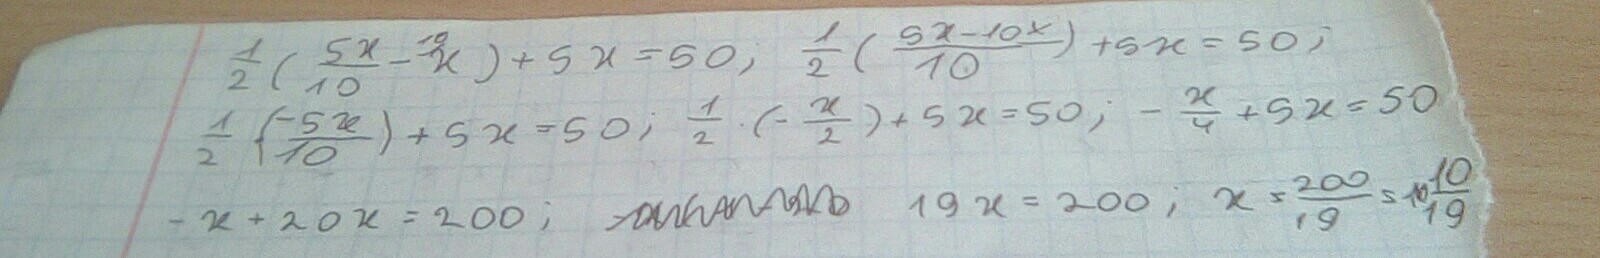 1/2 (5x/10 - x^10) + 5x = 50; 1/2 (5x-10x/10) + 5x = 50;
1/2 (-5x/10) + 5x = 50; 1/2 · (-x/2) + 5x = 50; -x/4 + 5x = 50
-x + 20x = 200; 19x = 200; x = 200/19 = 10 10/19